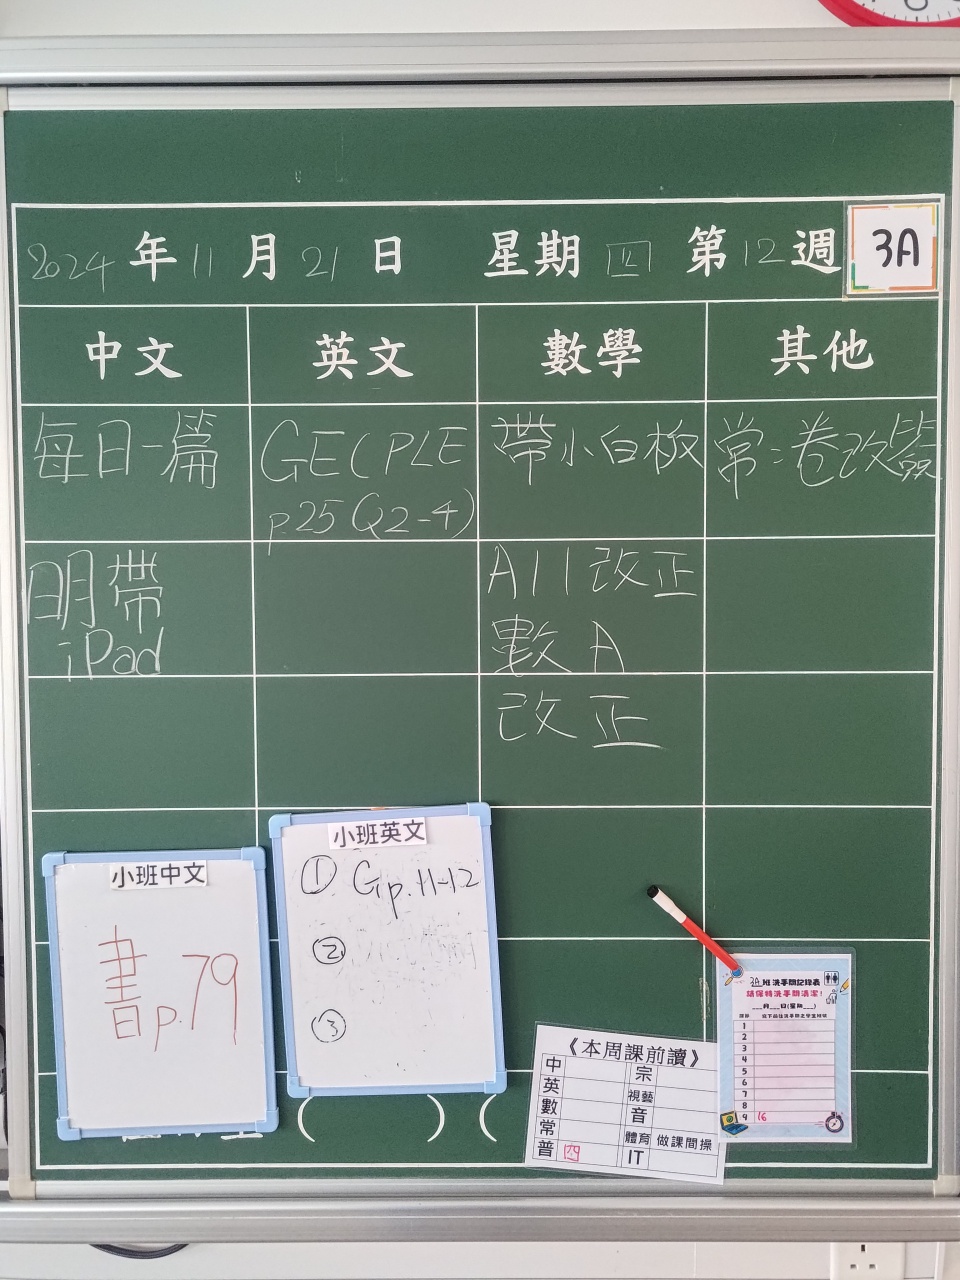 2024年11月21日 星期四 第12週 3A
中文 英文 數學 其他
每日一篇
GE(PLE
p.25(Q2-4)
帶小白板
常:卷改簽
明帶
iPad
A11改正
數A
改正
小班中文
書p.79
小班英文
① G p.11-12
②
③
( ) (
《本周課前讀》
中 宗
英 視藝
數 音
常 體育 做課間操
普 四 IT
3A班洗手間記錄表
請保持洗手間清潔!
__月__日(星期__)
1
2
3
4
5
6
7
8
9 16